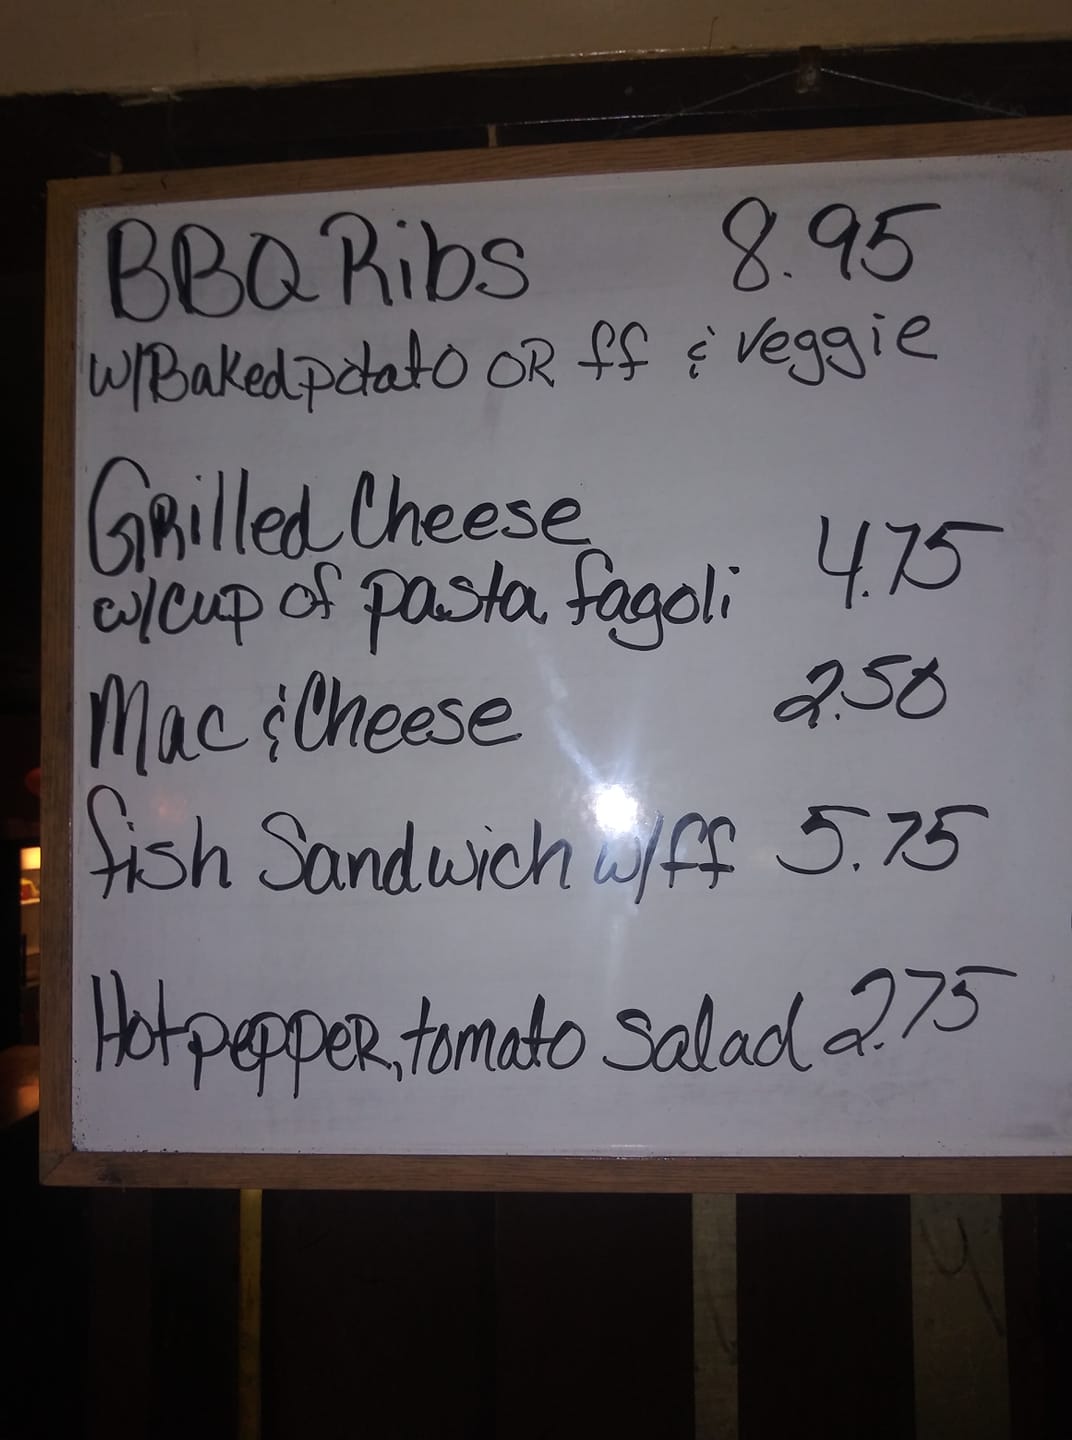 BBQ Ribs 8.95
w/Baked potato OR ff & veggie
Grilled Cheese
w/cup of pasta fagoli 4.75
Mac & Cheese 2.50
fish Sandwich w/ff 5.75
Hot pepper, tomato Salad 2.75